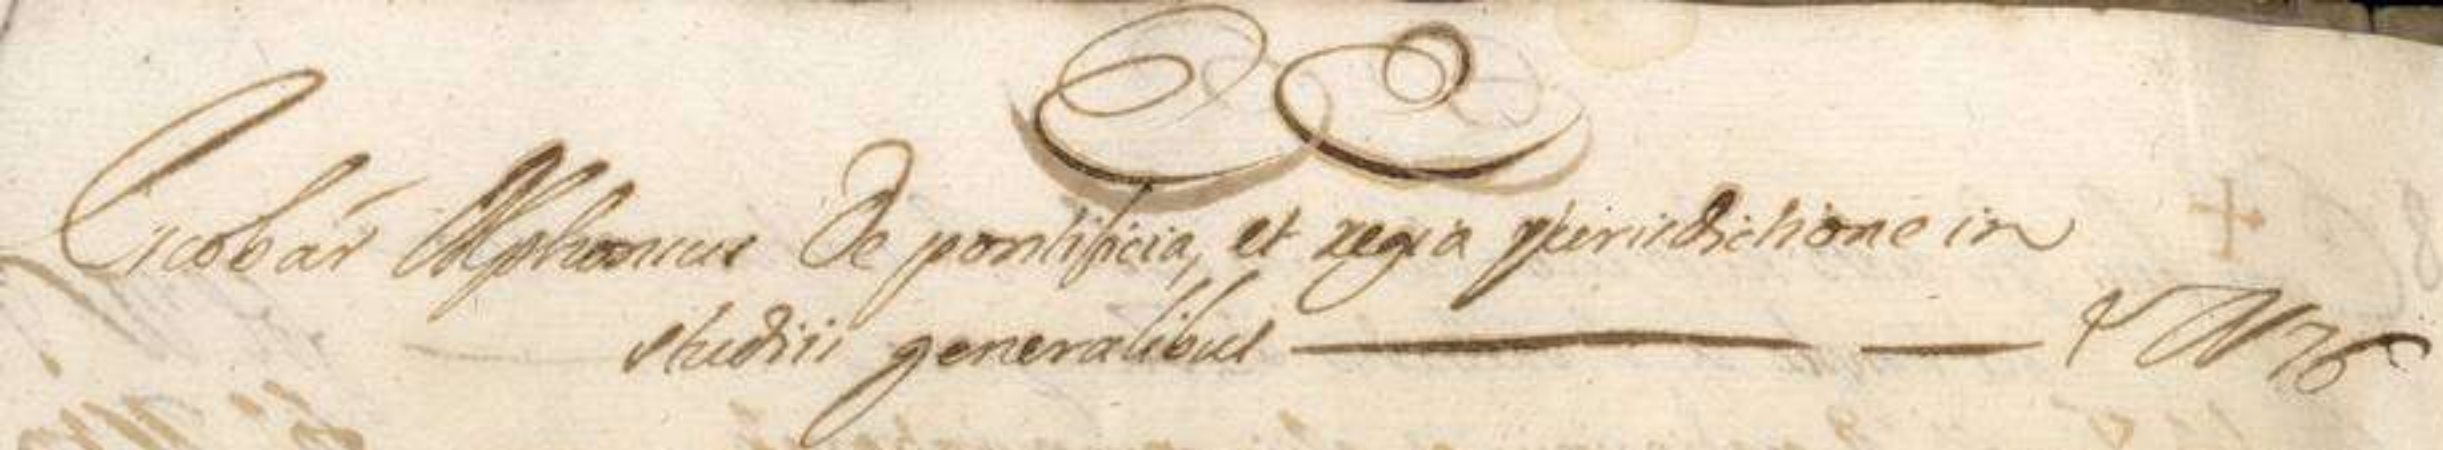 Escobár Alphonsus De pontificia, et regia jurisdictione in
studiis generalibus